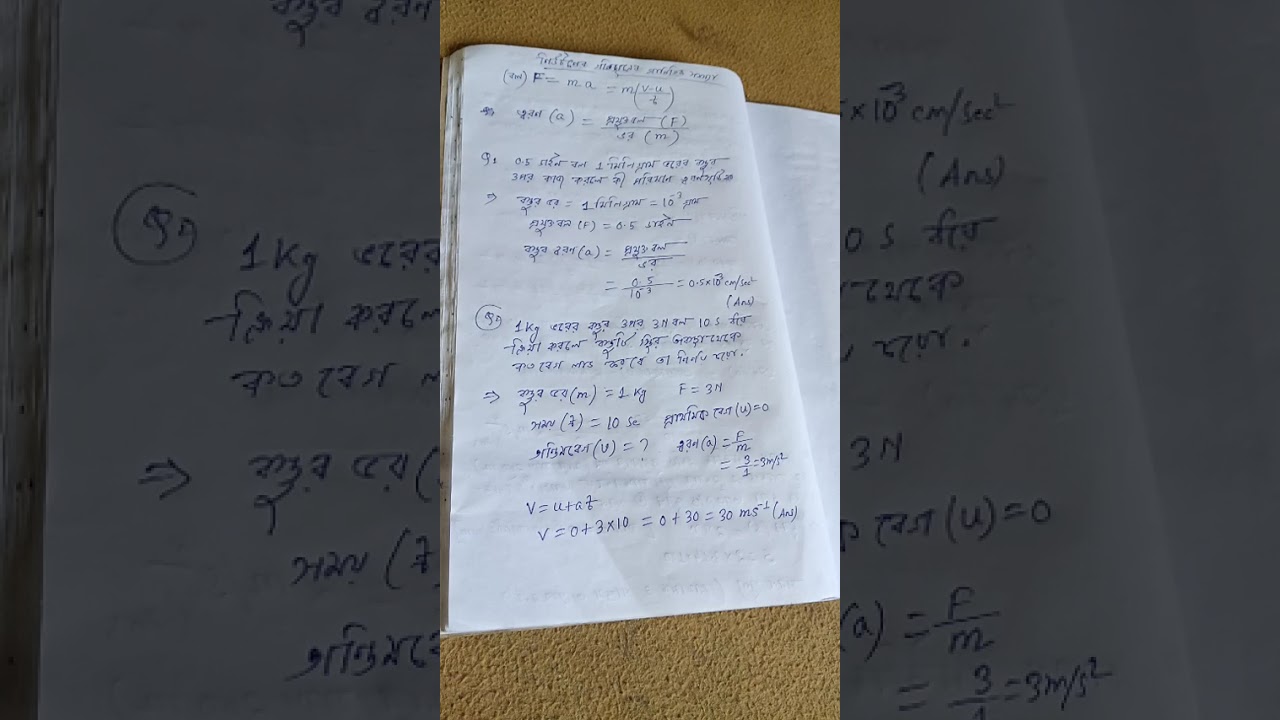 নিউটনের গতিসূত্রের গাণিতিক সমস্যা
(বল) F = ma = m(v-u/t)
⇒ ত্বরণ (a) = প্রযুক্ত বল (F) / ভর (m)
Q1 0.5 ডাইন বল 1 মিলিগ্রাম ভরের বস্তুর
উপর কাজ করলে কী পরিমাণ
⇒ বস্তুর ভর = 1 মিলিগ্রাম = 10⁻³ গ্রাম
প্রযুক্ত বল (F) = 0.5 ডাইন
বস্তুর ত্বরণ (a) = প্রযুক্ত বল / ভর
= 0.5 / 10⁻³ = 0.5×10⁻³ cm/sec²
(Ans)
Q 1 Kg ভরের বস্তুর উপর 3N বল 10 S ধরে
ক্রিয়া করলে বস্তুটি স্থির অবস্থা থেকে
কত বেগ লাভ করবে তা নির্ণয় করো.
⇒ বস্তুর ভর (m) = 1 Kg F = 3N
সময় (t) = 10 Se প্রাথমিক বেগ (u) = 0
অন্তিম বেগ (v) = ? ত্বরণ (a) = F/m
= 3/1 = 3m/s²
V = u+at
V = 0+3×10 = 0+30 = 30 ms⁻¹ (Ans)